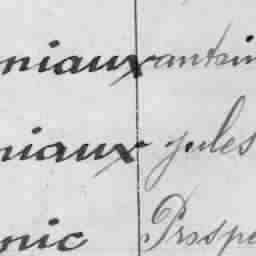 niaux antoin
niaux jules
nic Prospe